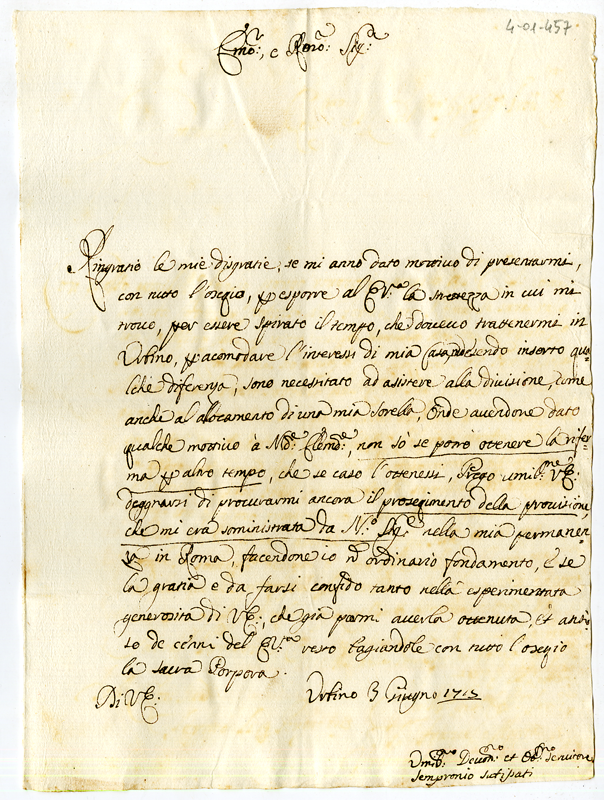 4-01-457
Em̃o:, e Rẽño: Sig:r
Ringratio le mie disgratie, se mi anno dato mottivo di presentarmi,
con tutto l'oseqio, p esporre al E.V.a la stretezza in cui mi
trovo, per essere spirato il tempo, che dovevo trattenermi in
Urbino, p acomodare l'interessi di mia Casa, essendo insorto qua=
lche diferenza, sono necessitato ad asistere alla divisione, come
anche al alocamento di una mia sorella, Onde avendone dato
qualche mottivo à Md:e Clemd:e, non sò se potrò ottenere la rifer
ma p altro tempo, che se caso l'ottenessi, Prego umil:me V.E:
degnarsi di procurarmi ancora il prosegimento della provisione,
che mi era soministrata da N:o Sig:e nella mia permanen
za in Roma, facendone io il ordinario fondamento, e se
la gratia e da farsi confido tanto nella esperimentata
generosità di V.E:, che già parmi averla ottenuta, Et
de cenni del E.V.a resto bagiandole con tutto l'oseqio
la sacra Porpora.
Di V.E: Urbino 3 Giugno 1713
Umil:mo Devot:mo et Obl:mo Servitore
Sempronio